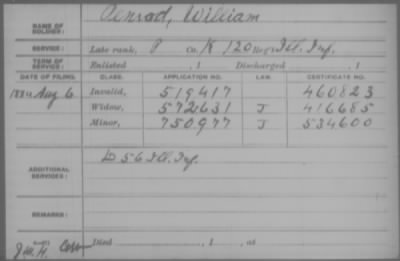 NAME OF SOLDIER: Penrad, William
SERVICE: Late rank, P Co. K, 120 Reg't Ill. Inf.
TERM OF SERVICE: Enlisted , 1 Discharged , 1
DATE OF FILING. CLASS. APPLICATION NO. LAW. CERTIFICATE NO.
1884 Aug 6 Invalid, 519417 460823
Widow, 572631 J 416685
Minor, 750977 J 534600
ADDITIONAL SERVICES: D 56 Ill. Inf.
REMARKS:
Died , 1 , at